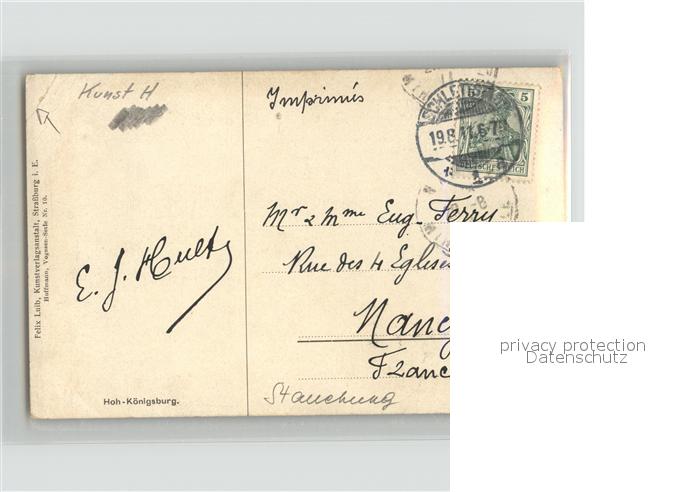 Kunst H
Imprimés
5
SCHLETTST
19.8.11.6-7
DEUTSCHES REICH
Felix Luib, Kunstverlagsanstalt, Straßburg i. E.
Hoffmann, Vogesen-Serie Nr. 10.
Mr & Mme Eug. Ferry
Rue des 4 Eglises
E. J.
Nanc
Franc
Hoh-Königsburg.
Stauchung
privacy protection
Datenschutz